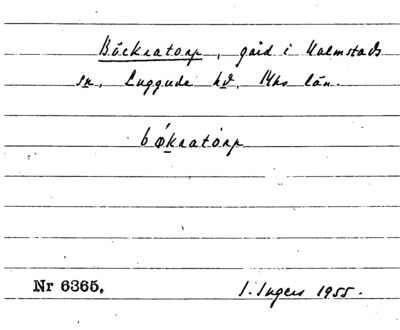 Böckratorp, gård i Halmstads
sn, Luggude hd, Mhs län.
bǿkratòrp
Nr 6365.
I. Ingers 1955.